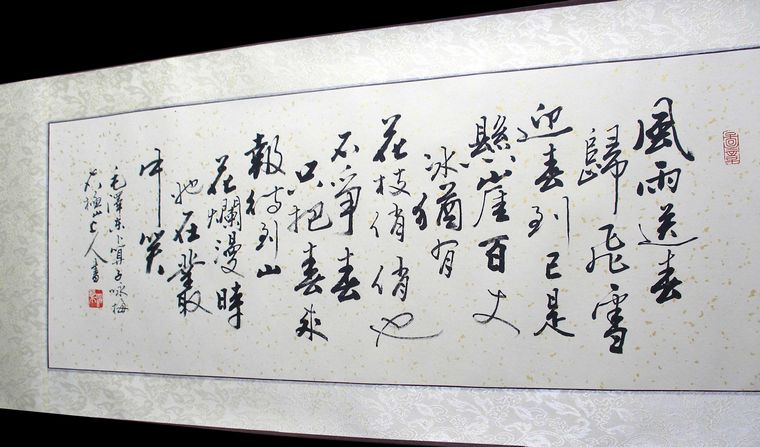 風雨送春
歸飛雪
迎春到已是
懸崖百丈
冰猶有
花枝俏俏也
不争春
只把春來
報待到山
花爛漫時
她在叢
中笑
毛澤东卜算子咏梅
山人書